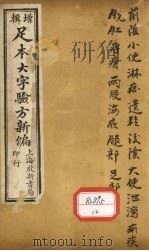 前陰小便淋症遺精後陰大便泄瀉痢疾
脫肛痔瘡兩腰海底腿部足部
增輯
足本大字驗方新編
上海啟新書局
印行